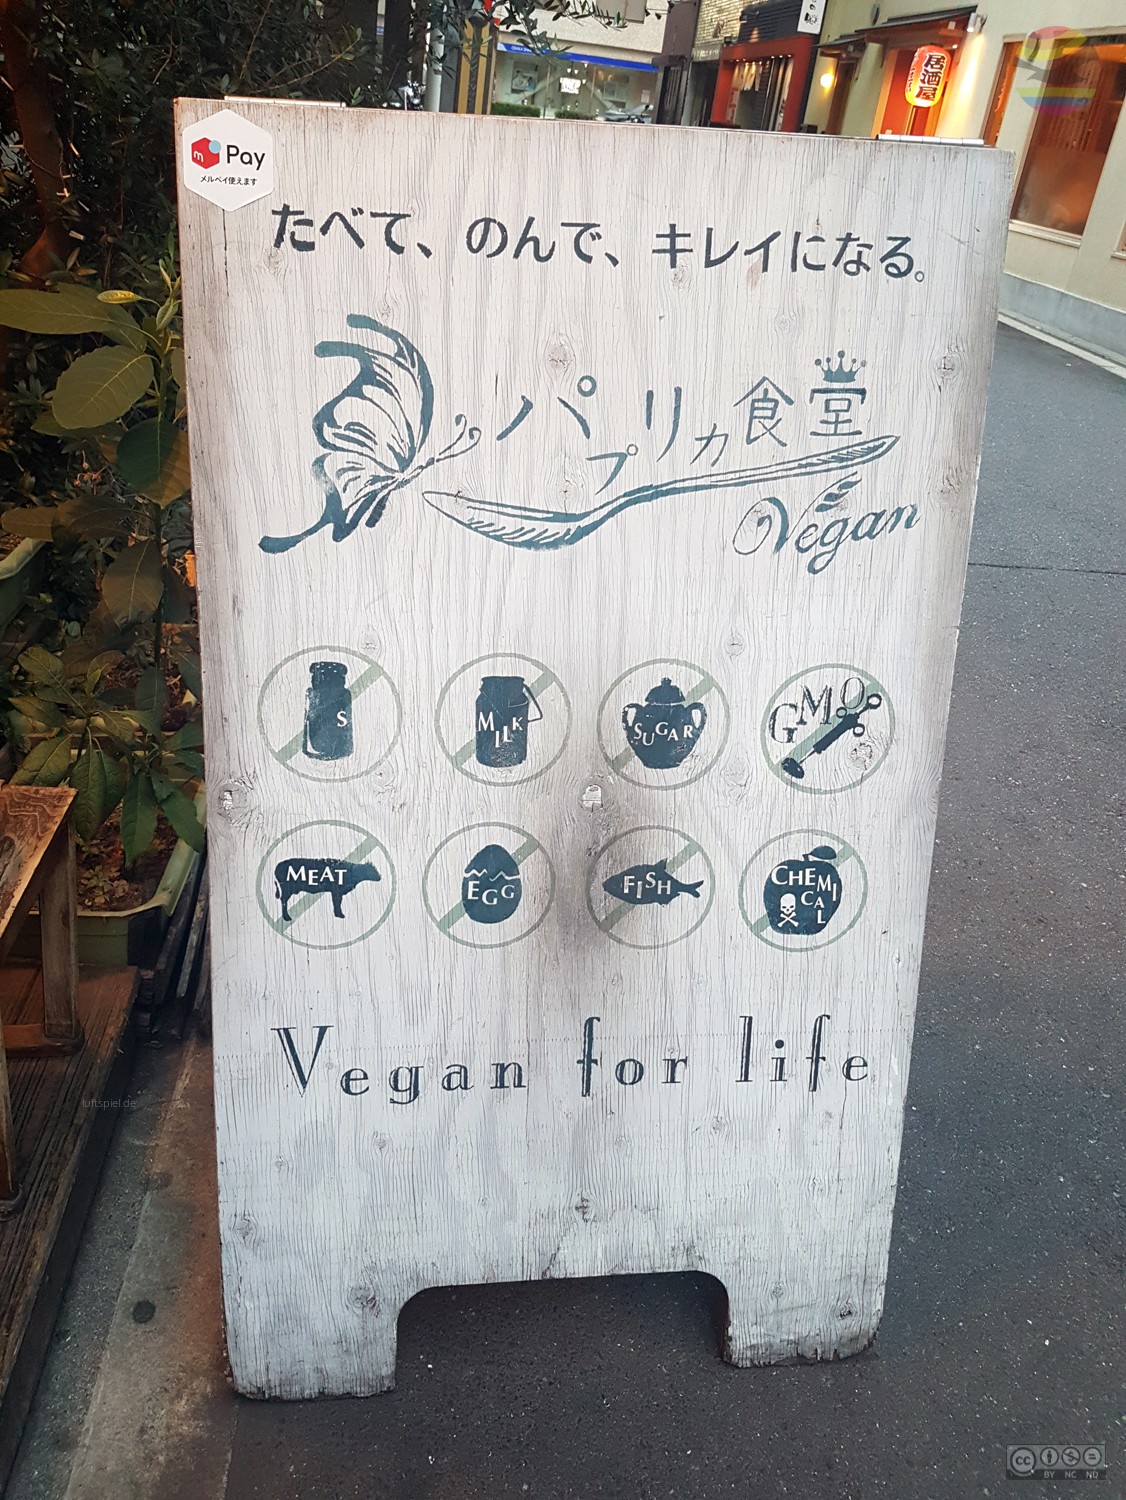 居酒屋
m Pay
メルペイ使えます
たべて、のんで、キレイになる。
パプリカ食堂
Vegan
S
MILK
SUGAR
GMO
MEAT
EGG
FISH
CHEMICAL
Vegan for life
luftspiel.de
cc
BY NC ND